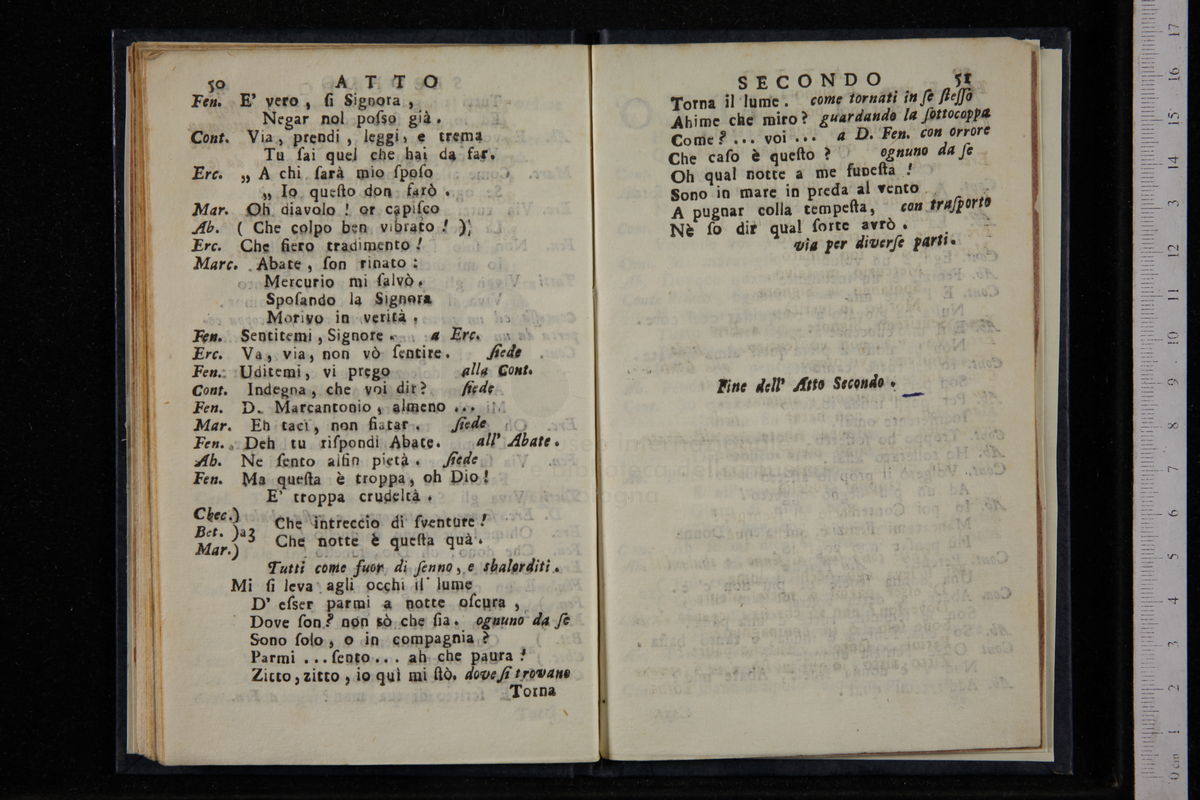 50 ATTO
Fen. E' vero, ſi Signora,
Negar nol poſso già.
Cont. Via, prendi, leggi, e trema
Tu ſai quel che hai da far.
Erc. „ A chi ſarà mio ſpoſo
„ Io queſto don farò.
Mar. Oh diavolo! or capiſco
Ab. ( Che colpo ben vibrato! );
Erc. Che fiero tradimento!
Marc. Abate, ſon rinato:
Mercurio mi ſalvò.
Spoſando la Signora
Morivo in verità.
Fen. Sentitemi, Signore. a Erc.
Erc. Va, via, non vò ſentire. ſiede
Fen. Uditemi, vi prego alla Cont.
Cont. Indegna, che voi dir? ſiede
Fen. D. Marcantonio, almeno ...
Mar. Eh taci, non fiatar. ſiede
Fen. Deh tu riſpondi Abate. all' Abate.
Ab. Ne ſento alfin pietà. ſiede
Fen. Ma queſta è troppa, oh Dio!
E' troppa crudeltà.
Chec.)
Bet. )a3 Che intreccio di ſventure!
Mar.) Che notte è queſta quà.
Tutti come fuor di ſenno, e sbalorditi.
Mi ſi leva agli occhi il lume
D' eſser parmi a notte oſcura,
Dove ſon? non sò che ſia. ognuno da ſe
Sono ſolo, o in compagnia?
Parmi ... ſento ... ah che paura!
Zitto, zitto, io quì mi ſtò. dove ſi trovano
Torna
SECONDO 51
Torna il lume. come tornati in ſe ſteſſo
Ahime che miro? guardando la ſottocoppa
Come? ... voi ... a D. Fen. con orrore
Che caſo è queſto? ognuno da ſe
Oh qual notte a me funeſta!
Sono in mare in preda al vento
A pugnar colla tempeſta, con traſporto
Nè ſo dir qual ſorte avrò.
via per diverſe parti.
Fine dell' Atto Secondo.
0 cm 1 2 3 4 5 6 7 8 9 10 11 12 13 14 15 16 17